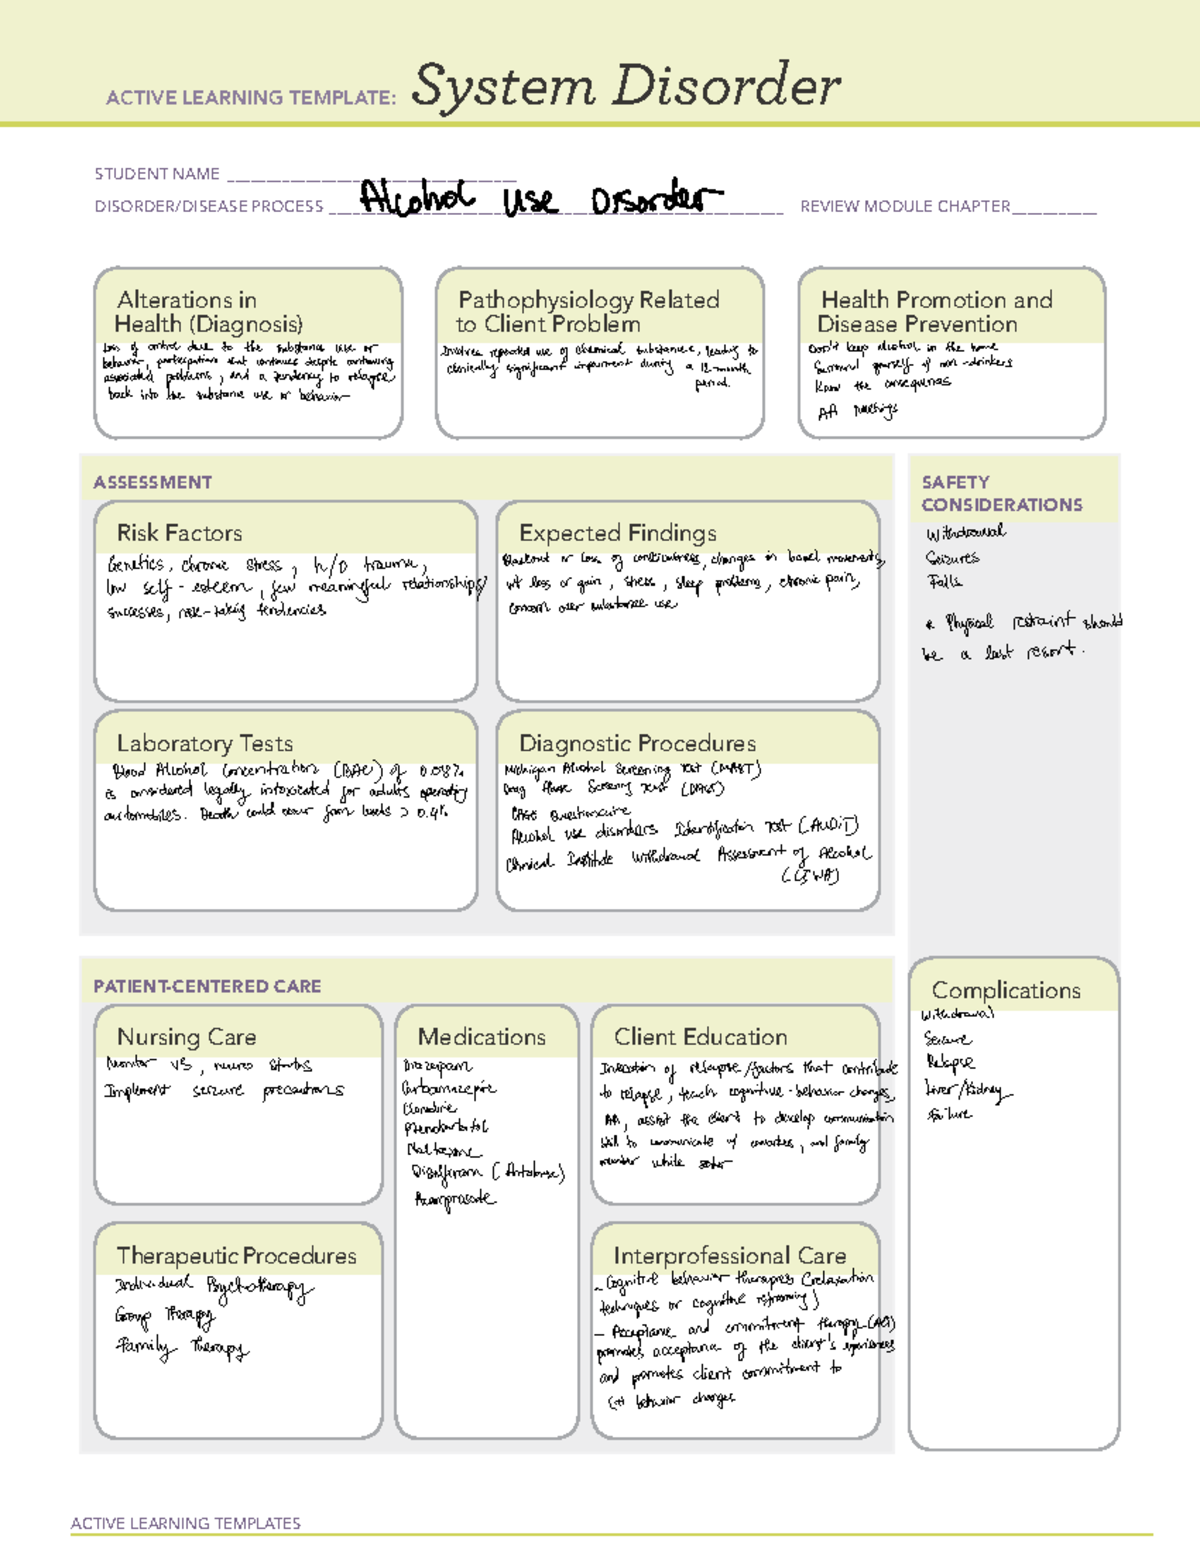 ACTIVE LEARNING TEMPLATE: System Disorder
STUDENT NAME
DISORDER/DISEASE PROCESS Alcohol Use Disorder REVIEW MODULE CHAPTER
Alterations in
Health (Diagnosis)
Loss of control due to the substance use or
behavior, participation that continues despite continuing
associated problems, and a tendency to relapse
back into the substance use or behavior
Pathophysiology Related
to Client Problem
Involves repeated use of chemical substances, leading to
clinically significant impairment during a 12-month
period.
Health Promotion and
Disease Prevention
Don't keep alcohol in the home
Surround yourself w/ non-drinkers
Know the consequences
AA meetings
ASSESSMENT
Risk Factors
Genetics, chronic stress, h/o trauma,
low self-esteem, few meaningful relationships/
successes, risk-taking tendencies
Expected Findings
Blackout or loss of consciousness, changes in bowel movements,
wt loss or gain, stress, sleep problems, chronic pain,
concern over substance use
SAFETY
CONSIDERATIONS
Withdrawal
Seizures
Falls
* Physical restraint should
be a last resort.
Laboratory Tests
Blood Alcohol Concentration (BAC) of 0.08%
is considered legally intoxicated for adults operating
automobiles. Death could occur from levels > 0.4%
Diagnostic Procedures
Michigan Alcohol Screening Test (MAST)
Drug Abuse Screening Test (DAST)
CAGE Questionnaire
Alcohol use disorders Identification Test (AUDIT)
Clinical Institute Withdrawal Assessment of Alcohol
(CIWA)
PATIENT-CENTERED CARE
Nursing Care
Monitor VS, neuro status
Implement seizure precautions
Medications
Diazepam
Carbamazepine
Clonidine
Phenobarbital
Naltrexone
Disulfiram (Antabuse)
Acamprosate
Client Education
Indication of relapse/factors that contribute
to relapse, teach cognitive-behavior changes,
AA, assist the client to develop communication
skill to communicate w/ coworkers, and family
member while sober
Complications
Withdrawal
Seizure
Relapse
Liver/Kidney
Failure
Therapeutic Procedures
Individual Psychotherapy
Group Therapy
Family Therapy
Interprofessional Care
- Cognitive behavior therapies (relaxation
techniques or cognitive reframing)
- Acceptance and commitment therapy (ACT)
promotes acceptance of the client's experiences
and promotes client commitment to
(+) behavior changes
ACTIVE LEARNING TEMPLATES